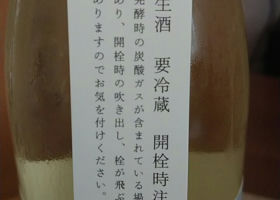 生酒 要冷蔵 開栓時注
発酵時の炭酸ガスが含まれている場
あり、開栓時の吹き出し、栓が飛ぶ
ありますのでお気を付けください。